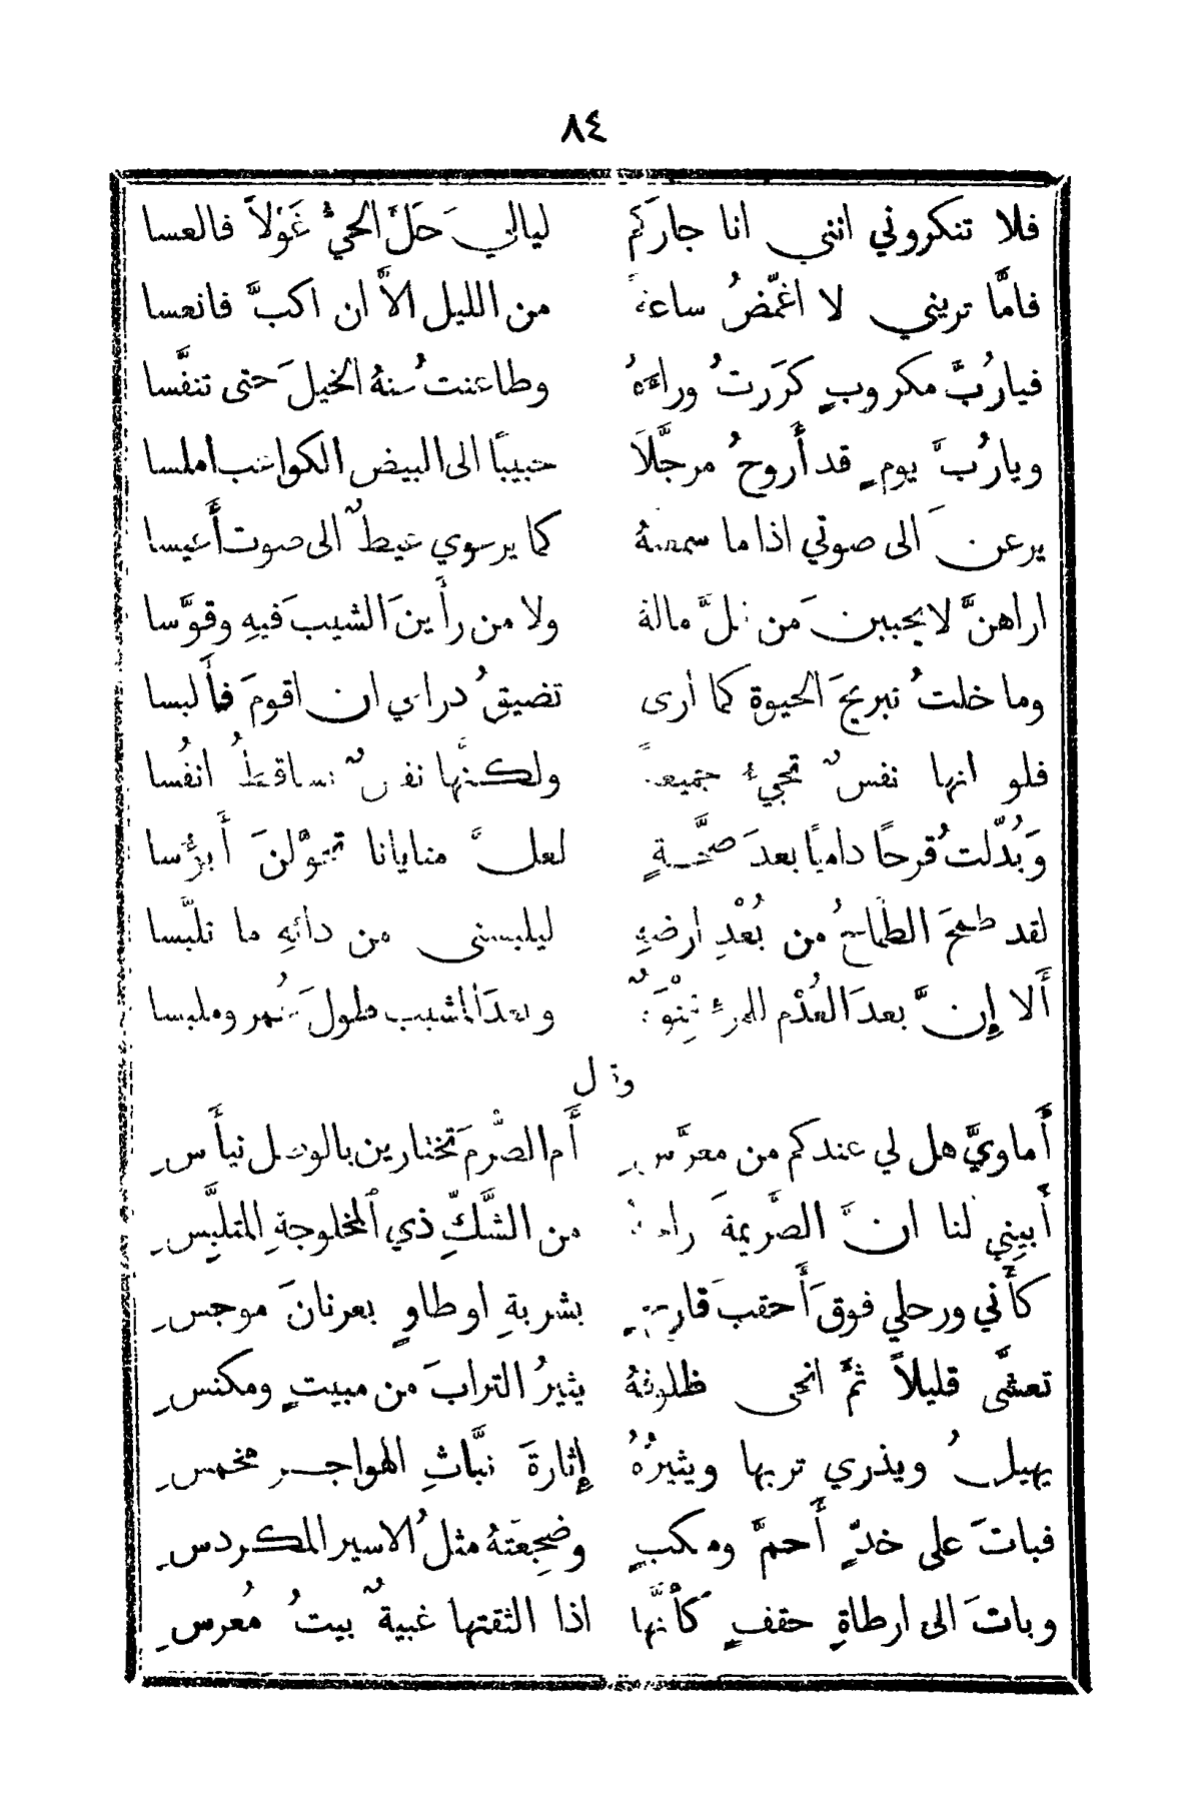 ٨٤
فلا تنكروني انني انا جارَكم لياليَ حَلَّ الحيُّ غَوْلاً فالعسا
فامَّا تريني لا اغمّضُ ساعةً من الليل الاَّ ان اكبَّ فانعسا
فيارُبَّ مكروبٍ كرَرتُ وراءَهُ وطاعنتُ عنهُ الخيلَ حتى تنفَّسا
ويارُبَّ يومٍ قد أَروحُ مرجَّلاَ حبيبًا الى البيض الكواعب املسا
يرعنَ الى صوتي اذا ما سمعنهُ كما يرعوي عيطٌ الى صوت أَعيسا
اراهنَّ لا يحببنَ من قلَّ مالهُ ولا من رأَينَ الشيبَ فيهِ وقوَّسا
وما خلتُ تبريحَ الحيوة كما أرى تضيقُ ذراعي ان اقومَ فأَلبسا
فلو انها نفسٌ تجيءُ جميعةً ولكنَّها نفسٌ تساقطُ انفُسا
وَبُدّلتُ قرحًا داميًا بعدَ صحَّةٍ لعلَّ منايانا تحوَّلنَ أَبؤُسا
لقد طمحَ الطمَّاحُ من بُعْدِ ارضهِ ليلبسني من دائهِ ما تلبَّسا
أَلا إِنَّ بعدَ العُدْم للمرءِ قِنْوَةٌ وبعدَ المشيب طولَ عُمر وملبسا
وقال
أَماويَّ هل لي عندكم من معرَّسِ أَم الصّرمَ تختارين بالوصل نيأَسِ
أَبيني لنا انَّ الصَّريمةَ راحةٌ من الشَّكِّ ذي المخلوجةِ المتلبِّسِ
كأَني ورحلي فوقَ أَحقبَ قارحٍ بشربةِ او طاوٍ بعرنانَ موجسِ
تعشَّى قليلاً ثمَّ انحى ظلوفهُ يثيرُ الترابَ من مبيتٍ ومكنسِ
يهيلُ ويذري تربها ويثيرُهُ إِثارةَ نبَّاثِ الهواجر مخمسِ
فباتَ على خدٍّ أَحمَّ ومكبٍ وضجعَتهُ مثلُ الاسير المكردسِ
وباتَ الى ارطاةِ حقفٍ كأَنَّها اذا الثقتها غبيةٌ بيتُ مُعرسِ